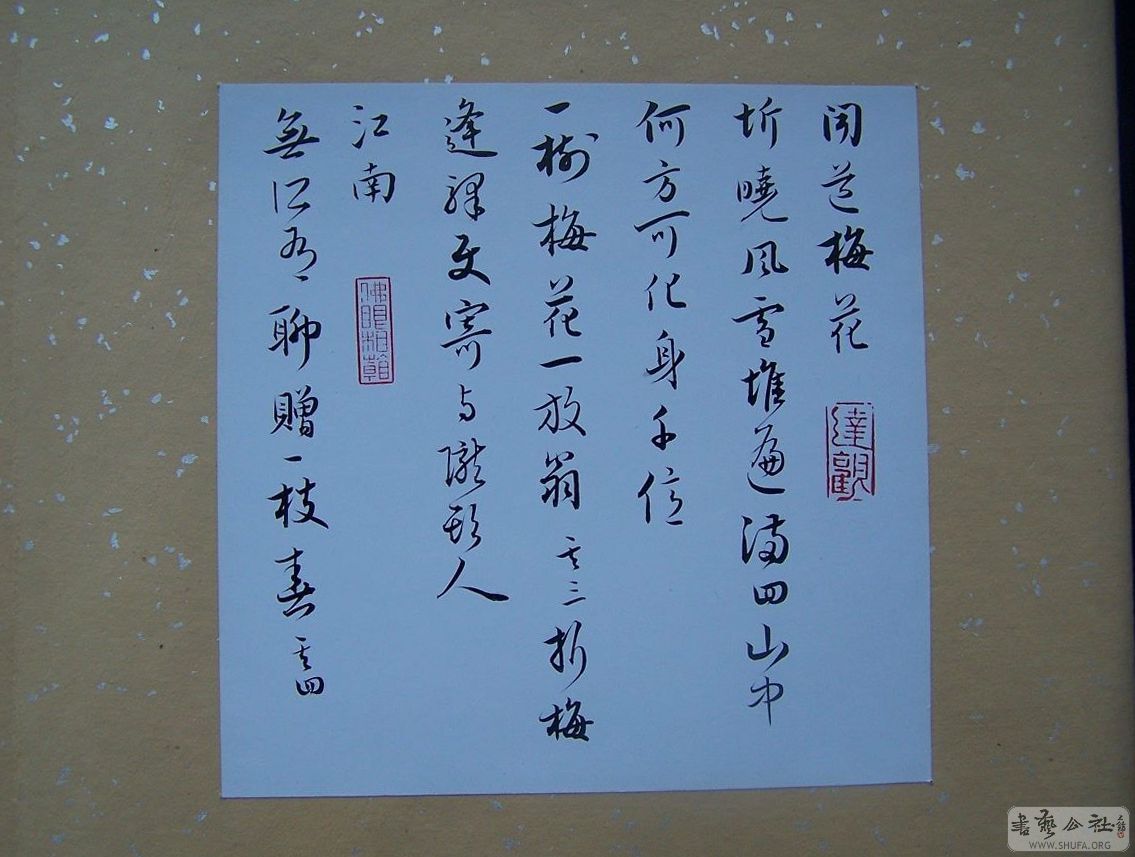 闻道梅花
坼晓风雪堆遍满四山中
何方可化身千亿
一树梅花一放翁 其三 折梅
逢驿使寄与陇头人
江南
無所有聊贈一枝春 其四
達觀
書藝公社
WWW.SHUFA.ORG